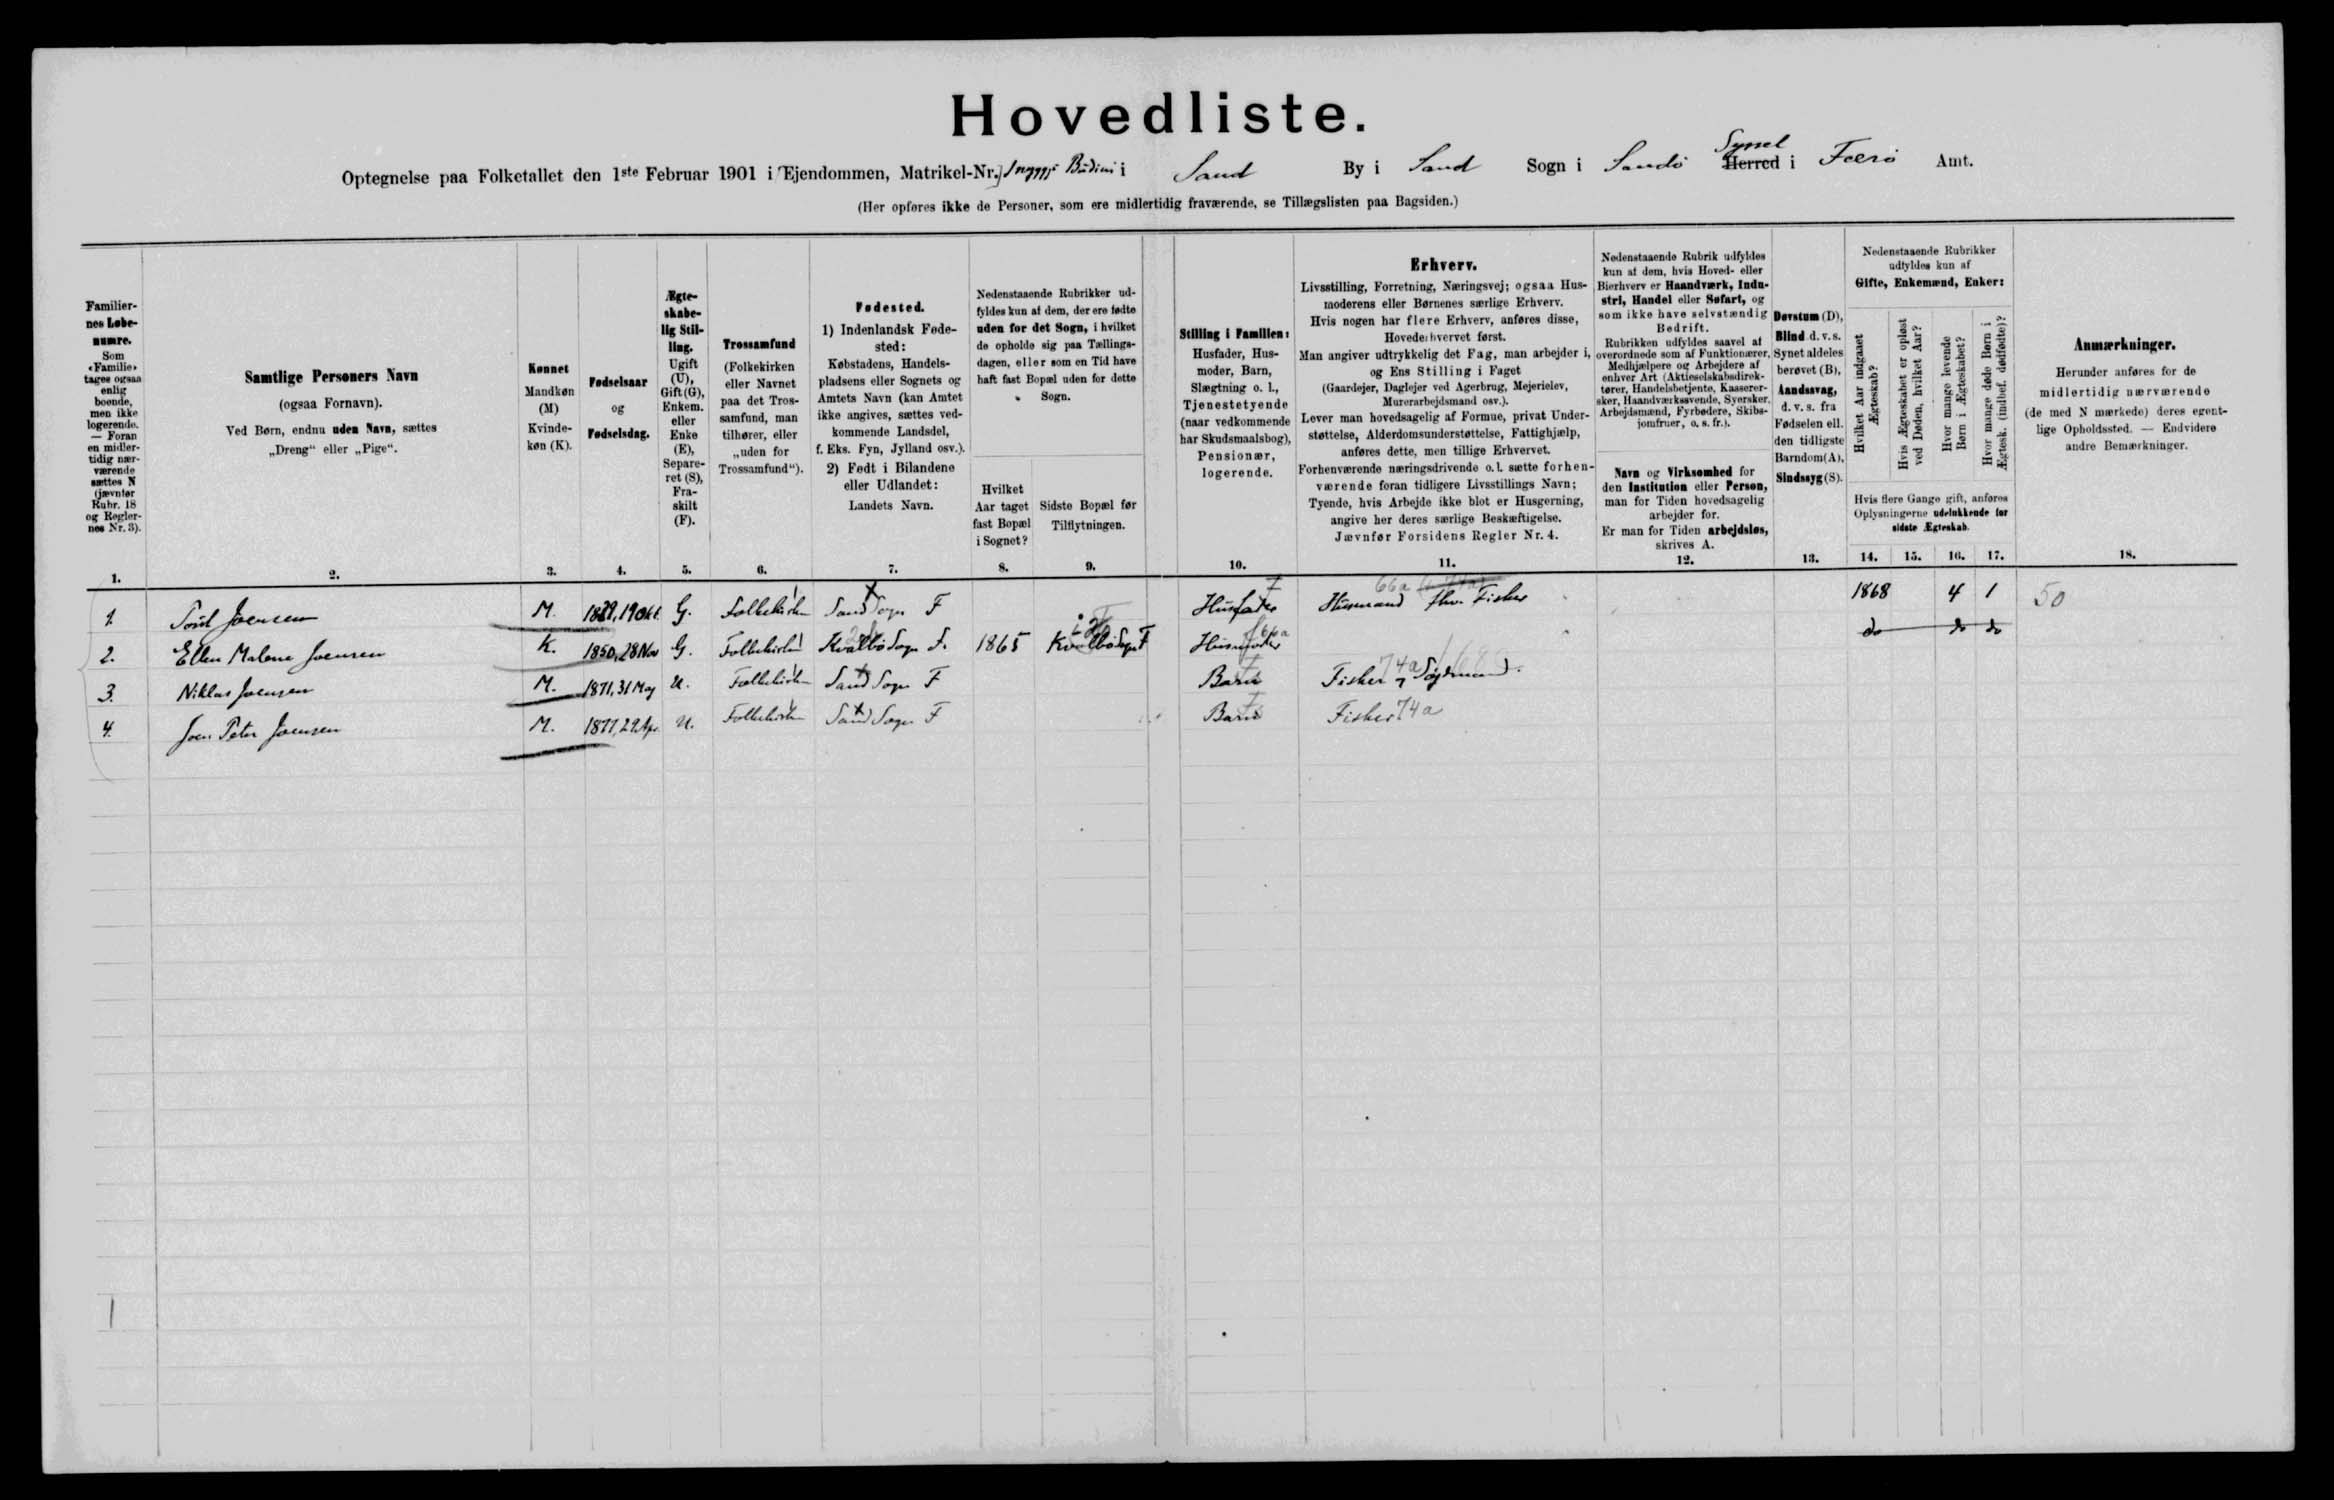 Hovedliste.
Optegnelse paa Folketallet den 1ste Februar 1901 i Ejendommen, Matrikel-Nr. i Sand By i Sand Sogn i Sandö Syssel Herred i Færö Amt.
(Her opføres ikke de Personer, som ere midlertidig fraværende, se Tillægslisten paa Bagsiden.)
Familiernes Løbenumre.
Som «Familie» tages ogsaa enlig boende, men ikke logerende. — Foran en midlertidig nærværende sættes N (jævnfør Rubr. 18 og Reglernes Nr. 3).
1.
Samtlige Personers Navn
(ogsaa Fornavn).
Ved Børn, endnu uden Navn, sættes
„Dreng“ eller „Pige“.
2.
Kønnet
Mandkøn (M)
Kvindekøn (K).
3.
Fødselsaar
og
Fødselsdag.
4.
Ægteskabelig Stilling.
Ugift (U), Gift (G), Enkem. eller Enke (E), Separeret (S), Fraskilt (F).
5.
Trossamfund
(Folkekirken eller Navnet paa det Trossamfund, man tilhører, eller „uden for Trossamfund“).
6.
Fødested.
1) Indenlandsk Fødested:
Købstadens, Handelspladsens eller Sognets og Amtets Navn (kan Amtet ikke angives, sættes vedkommende Landsdel, f. Eks. Fyn, Jylland osv.).
2) Født i Bilandene eller Udlandet:
Landets Navn.
7.
Nedenstaaende Rubrikker udfyldes kun af dem, der ere fødte uden for det Sogn, i hvilket de opholde sig paa Tællingsdagen, eller som en Tid have haft fast Bopæl uden for dette Sogn.
Hvilket Aar taget fast Bopæl i Sognet?
8.
Sidste Bopæl før Tilflytningen.
9.
Stilling i Familien:
Husfader, Husmoder, Barn, Slægtning o. l., Tjenestetyende (naar vedkommende har Skudsmaalsbog), Pensionær, logerende.
10.
Erhverv.
Livsstilling, Forretning, Næringsvej; ogsaa Husmoderens eller Børnenes særlige Erhverv.
Hvis nogen har flere Erhverv, anføres disse, Hovederhvervet først.
Man angiver udtrykkelig det Fag, man arbejder i, og Ens Stilling i Faget
(Gaardejer, Daglejer ved Agerbrug, Mejerielev, Murerarbejdsmand osv.).
Lever man hovedsagelig af Formue, privat Understøttelse, Alderdomsunderstøttelse, Fattighjælp, anføres dette, men tillige Erhvervet.
Forhenværende næringsdrivende o. l. sætte forhenværende foran tidligere Livsstillings Navn;
Tyende, hvis Arbejde ikke blot er Husgerning, angive her deres særlige Beskæftigelse.
Jævnfør Forsidens Regler Nr. 4.
11.
Nedenstaaende Rubrik udfyldes kun af dem, hvis Hoved- eller Bierhverv er Haandværk, Industri, Handel eller Søfart, og som ikke have selvstændig Bedrift.
Rubrikken udfyldes saavel af overordnede som af Funktionærer, Medhjælpere og Arbejdere af enhver Art (Aktieselskabsdirektører, Handelsbetjente, Kasserersker, Haandværkssvende, Syersker, Arbejdsmænd, Fyrbødere, Skibsjomfruer, o. s. fr.).
Navn og Virksomhed for den Institution eller Person, man for Tiden hovedsagelig arbejder for.
Er man for Tiden arbejdsløs, skrives A.
12.
Døvstum (D), Blind d. v. s. Synet aldeles berøvet (B), Aandssvag, d. v. s. fra Fødselen ell. den tidligste Barndom (A), Sindssyg (S).
13.
Nedenstaaende Rubrikker udfyldes kun af
Gifte, Enkemænd, Enker:
Hvilket Aar indgaaet Ægteskab?
Hvis Ægteskabet er opløst ved Døden, hvilket Aar?
Hvor mange levende Børn i Ægteskabet?
Hvor mange døde Børn i Ægtesk. (indbef. dødfødte)?
Hvis flere Gange gift, anføres Oplysningerne udelukkende for sidste Ægteskab.
14. 15. 16. 17.
Anmærkninger.
Herunder anføres for de midlertidig nærværende (de med N mærkede) deres egentlige Opholdssted. — Endvidere andre Bemærkninger.
18.
1. Joensen M. 19 Okt. G. Folkekirken Sand Sogn F Husfader Husmand fhv. Fisker 66a 1868 4 1 50
2. Ellen Malene Joensen K. 1850, 28 Nov G. Folkekirken Kvalbö Sogn F. 1865 Kvalbö Sogn F Husmoder 66a do do do
3. Niklas Joensen M. 1871, 31 Maj U. Folkekirken Sand Sogn F Barn Fisker 74a
4. Joen Peter Joensen M. 1877, 29 Apr. U. Folkekirken Sand Sogn F Barn Fisker 74a